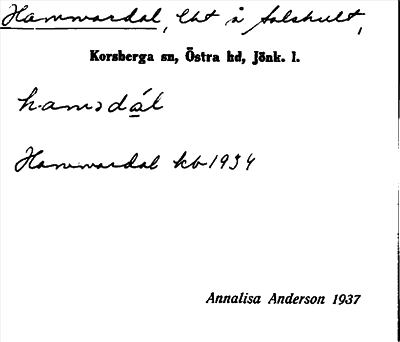 Hammardal, lht å Folshult,
Korsberga sn, Östra hd, Jönk. l.
hamədá̱l
Hammardal kb 1934
Annalisa Anderson 1937